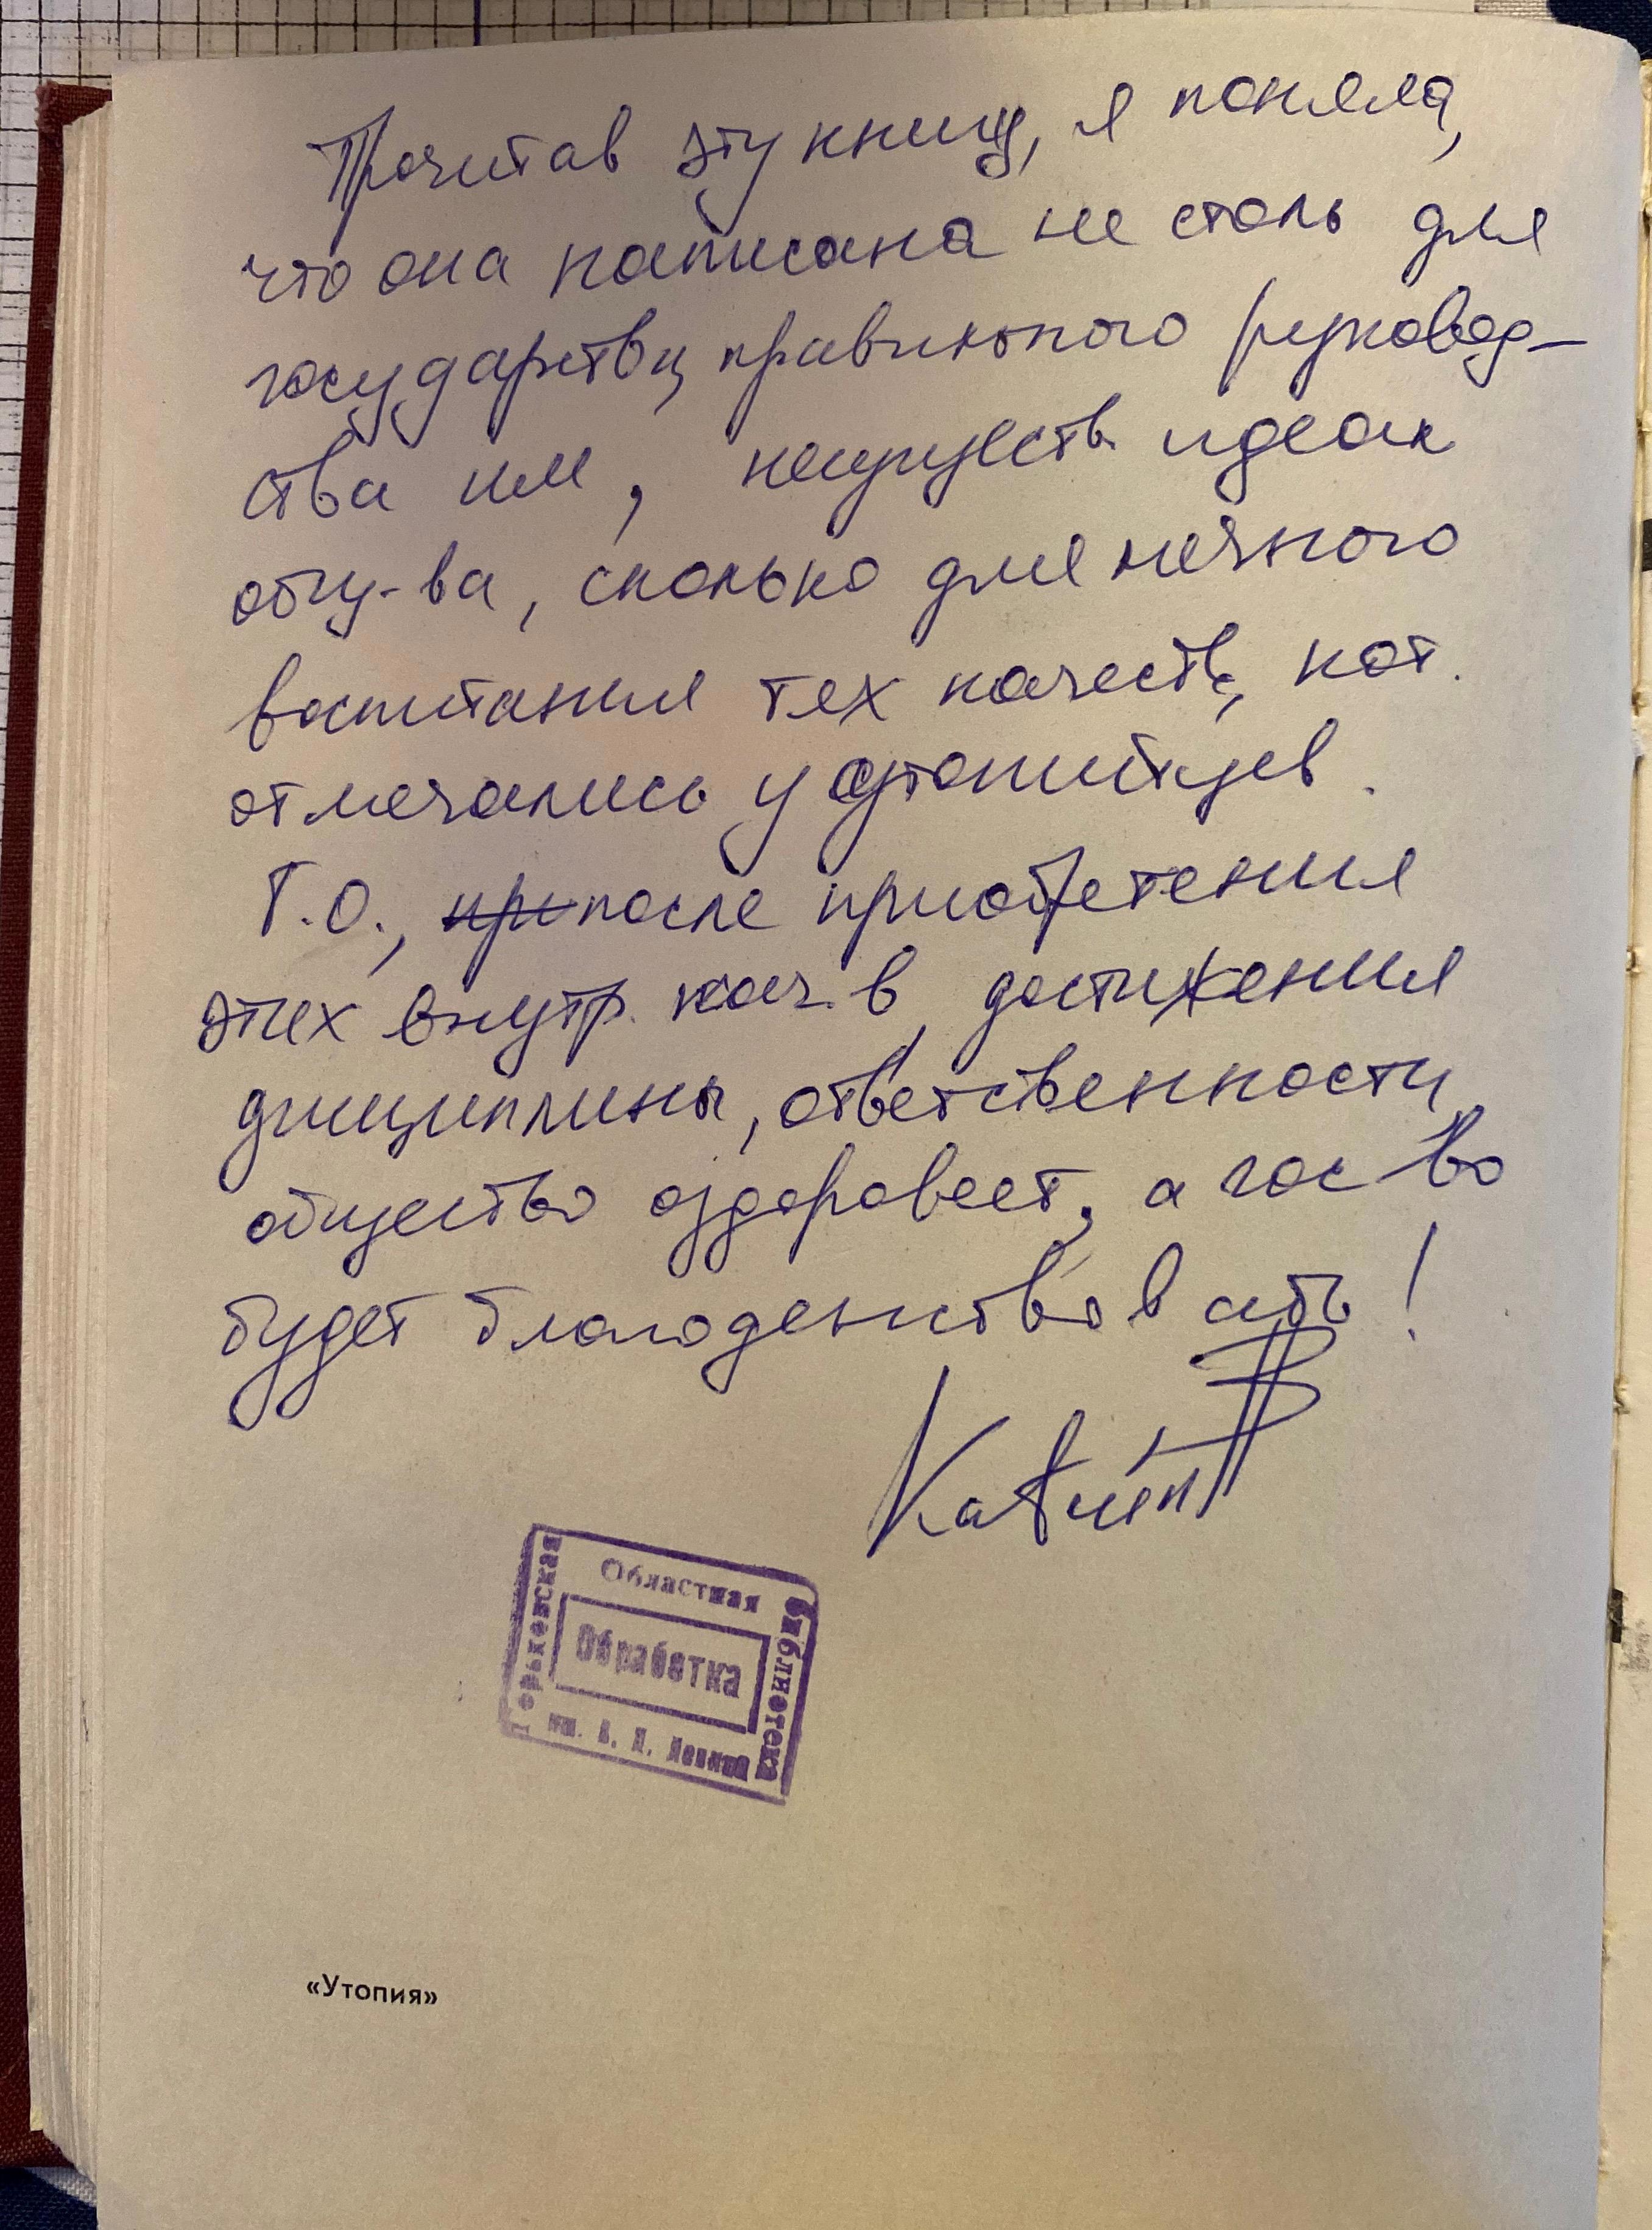 Прочитав эту книгу, я поняла,
что она написана не столь для
государства, правильного руковод-
ства им, неимуществ идеал
общ-ва, сколько для личного
воспитания тех качеств, кот.
отмечались у утопийцев.
Т.О., при после приобретения
этих внутр. кач.в, достижения
дисциплины, ответственности
общество оздоровеет, а гос во
будет благоденствовать!
Областная
Горьковская
Обработка
библиотека
им. В. И. Ленина
«Утопия»